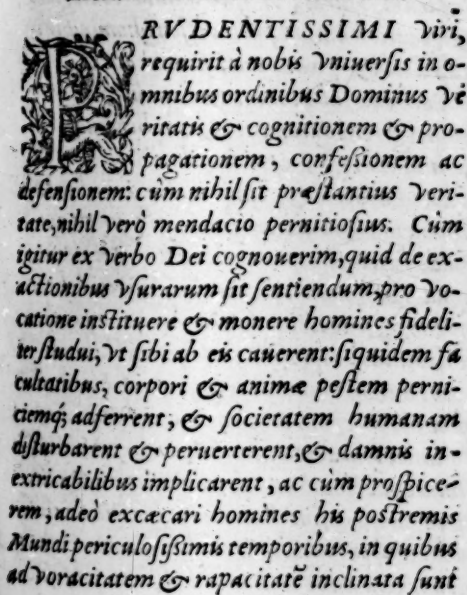 PRVDENTISSIMI viri,
requirit à nobis vniuersis in o-
mnibus ordinibus Dominus vē
ritatis & cognitionem & pro-
pagationem, confeſsionem ac
defenſionem: cùm nihil ſit præſtantius veri-
tate, nihil verò mendacio pernitioſius. Cùm
igitur ex verbo Dei cognouerim, quid de ex-
actionibus vſurarum ſit ſentiendum, pro vo-
catione inſtituere & monere homines fideli-
ter ſtudui, vt ſibi ab eis cauerent: ſiquidem fa
cultatibus, corpori & animæ peſtem perni-
ciemq́; adferrent, & ſocietatem humanam
diſturbarent & peruerterent, & damnis in-
extricabilibus implicarent, ac cùm proſpice-
rem, adeò excæcari homines his poſtremis
Mundi periculoſiſsimis temporibus, in quibus
ad voracitatem & rapacitatē inclinata ſunt